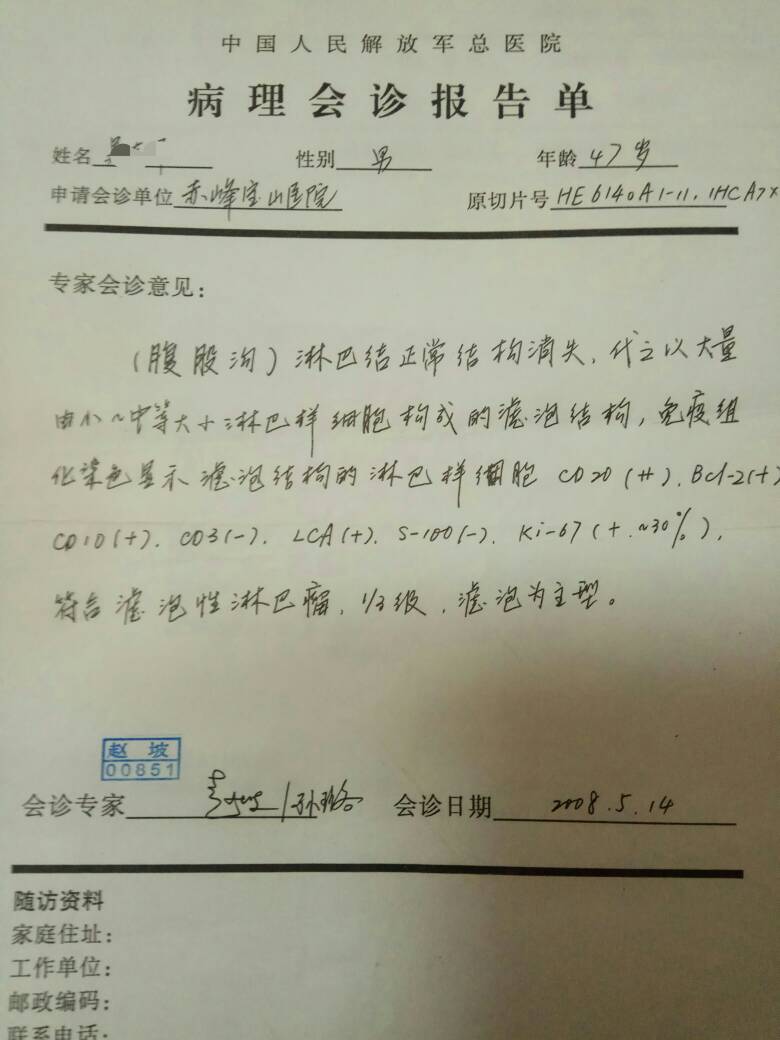 中国人民解放军总医院
病理会诊报告单
姓名 性别 男 年龄 47岁
申请会诊单位 赤峰宝山医院 原切片号 HE 6140A1-11, IHC A7X
专家会诊意见:
(腹股沟)淋巴结正常结构消失,代之以大量
由小~中等大小淋巴样细胞构成的滤泡结构,免疫组
化染色显示滤泡结构的淋巴样细胞 CD20(++), Bcl-2(+)
CD10(+), CD3(-), LCA(+), S-100(-), Ki-67(+,~30%),
符合滤泡性淋巴瘤,1/3级,滤泡为主型。
赵坡
00851
会诊专家 会诊日期 2008.5.14
随访资料
家庭住址:
工作单位:
邮政编码:
联系电话: